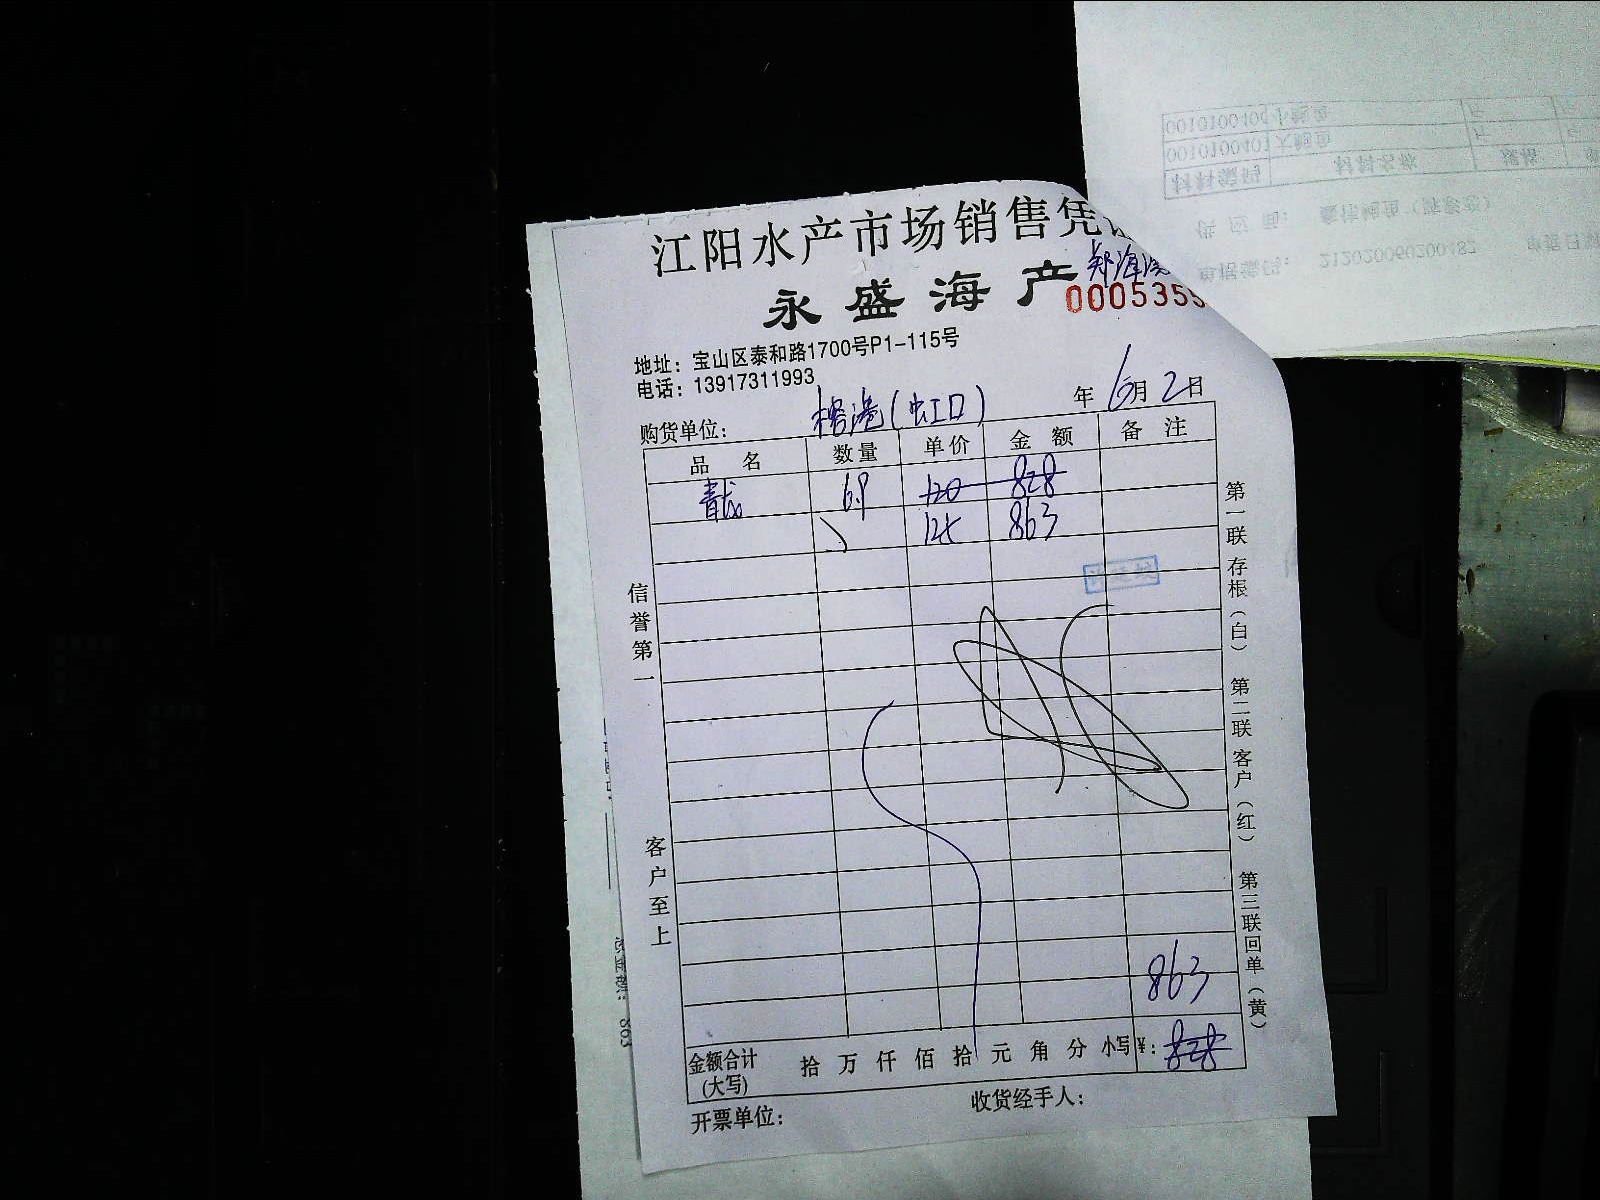 江阳水产市场销售凭
永盛海产
0005355
地址：宝山区泰和路1700号P1-115号
电话：13917311993
购货单位： (虹口) 年 6月 2日
品名 数量 单价 金额 备注
青龙 6.9 120 828
125 863
信誉第一
客户至上
第一联存根（白） 第二联客户（红） 第三联回单（黄）
863
金额合计(大写) 拾万仟佰拾元角分 小写¥：828
开票单位： 收货经手人：
0010100401
材料编码 材料名称 规格
供应商：
单据编码： 212020060200482
863